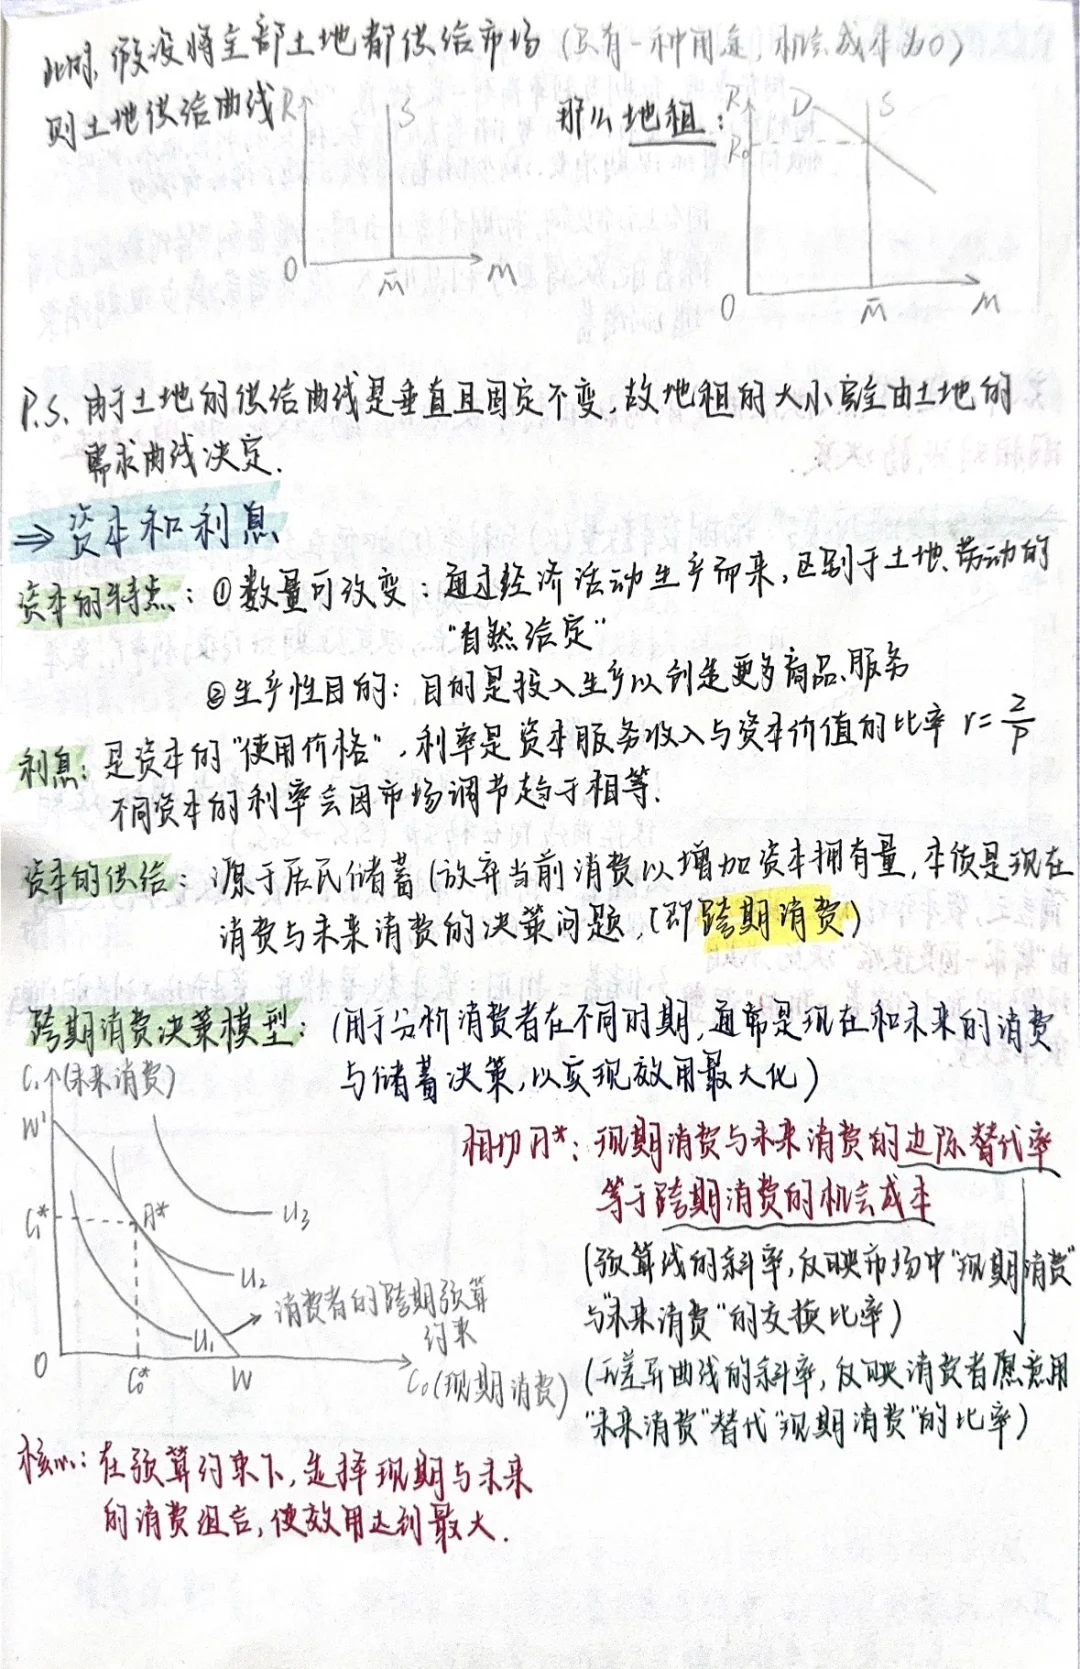 此时,假设将全部土地都供给市场(只有一种用途,机会成本为0)
则土地供给曲线
R
S
O
M̄
M
那么地租:
R
D
S
R₀
O
M̄
M
P.S. 由于土地的供给曲线是垂直且固定不变,故地租的大小完全由土地的
需求曲线决定.
⇒ 资本和利息
资本的特点:①数量可改变:通过经济活动生产而来,区别于土地、劳动的
"自然给定"
②生产性目的:目的是投入生产以创造更多商品、服务
利息:是资本的"使用价格",利率是资本服务收入与资本价值的比率 r=Z/P
不同资本的利率会因市场调节趋于相等.
资本的供给:源于居民储蓄(放弃当前消费以增加资本拥有量,本质是现在
消费与未来消费的决策问题,(即跨期消费)
跨期消费决策模型:(用于分析消费者在不同时期,通常是现在和未来的消费
与储蓄决策,以实现效用最大化)
C₁(未来消费)
W'
C₁*
A*
U₃
U₂
U₁
消费者的跨期预算
约束
O
C₀*
W
C₀(现期消费)
相切A*:现期消费与未来消费的边际替代率
等于跨期消费的机会成本
(预算线的斜率,反映市场中"现期消费"
与"未来消费"的交换比率)
(无差异曲线的斜率,反映消费者愿意用
"未来消费"替代"现期消费"的比率)
核心:在预算约束下,选择现期与未来
的消费组合,使效用达到最大.